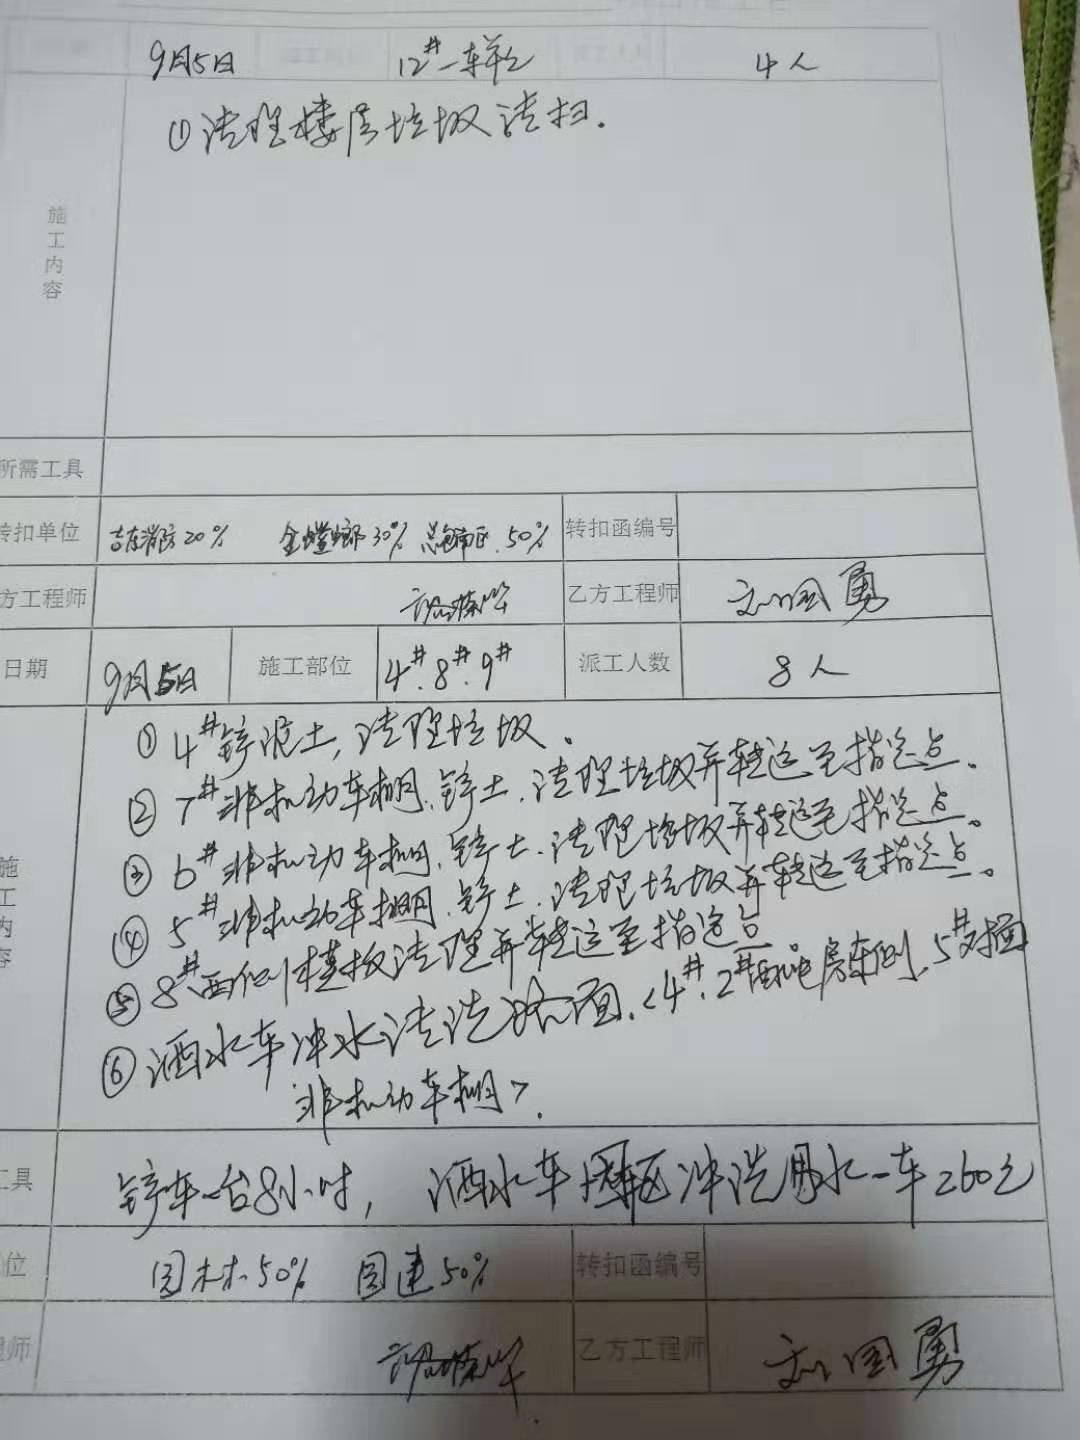 9月5日 12#一车单元 4人
①清理楼层垃圾清扫.
施工内容
所需工具
转扣单位 吉友消防20% 金螳螂30% 总包南区.50% 转扣函编号
方工程师 乙方工程师 刘国勇
日期 9月5日 施工部位 4#.8#.9# 派工人数 8人
①4#铲混土,清理垃圾。
②7#非机动车棚.铲土.清理垃圾并转运至指定点。
③6#非机动车棚.铲土.清理垃圾并转运至指定点。
④5#非机动车棚.铲土.清理垃圾并转运至指定点。
⑤8#西侧模板清理并转运至指定点
⑥洒水车冲水清洗路面.<4#.2#配电房东侧.5#对面
非机动车棚>.
施工内容
工具 铲车一台8小时, 洒水车 冲洗用水一车260元
位 园林50% 园建50% 转扣函编号
程师 乙方工程师 刘国勇